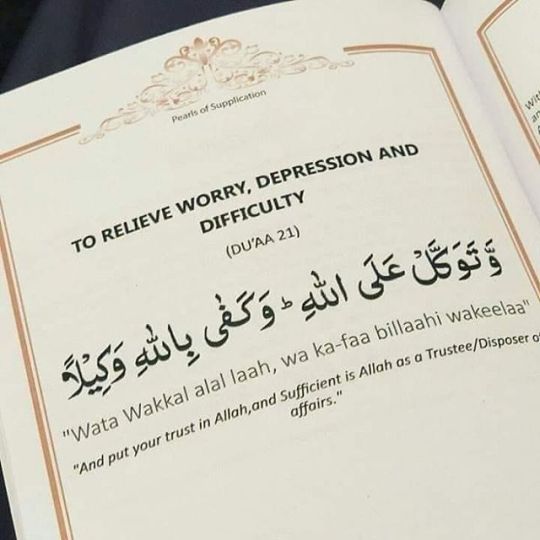 Pearls of Supplication
TO RELIEVE WORRY, DEPRESSION AND
DIFFICULTY
(DU'AA 21)
وَّتَوَكَّلْ عَلَى اللّٰهِ ؕ وَكَفٰى بِاللّٰهِ وَكِيْلًا
"Wata Wakkal alal laah, wa ka-faa billaahi wakeelaa"
"And put your trust in Allah,and Sufficient is Allah as a Trustee/Disposer of
affairs."